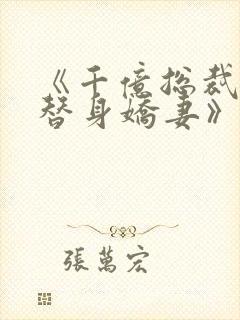 《千億總裁
替身嬌妻》
張萬宏